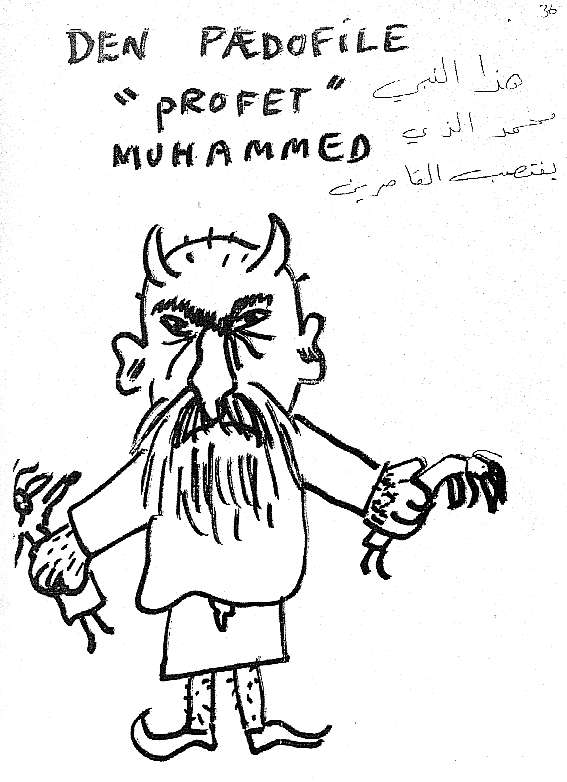 36
DEN PÆDOFILE
"PROFET"
MUHAMMED
هذا النبي
محمد الذي
يغتصب القاصرين